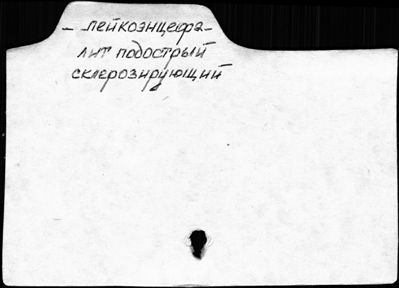 – лейкоэнцефа–
лит подострый
склерозирующий